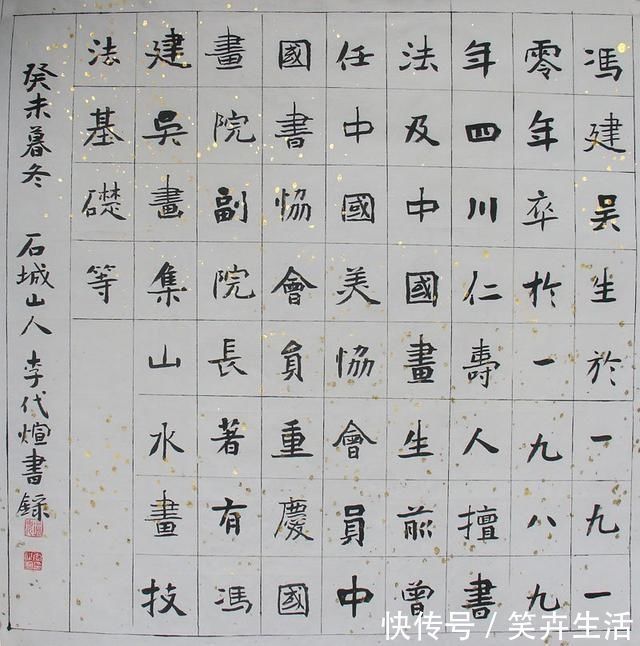 馮建吳生於一九一
零年卒於一九八九
年四川仁壽人擅書
法及中國畫生前曾
任中國美恊會員中
國書恊會員重慶國
畫院副院長著有馮
建吳畫集山水畫技
法基礎等
癸未暮冬 石城山人 李代煊書録
快传号 / 笑卉生活